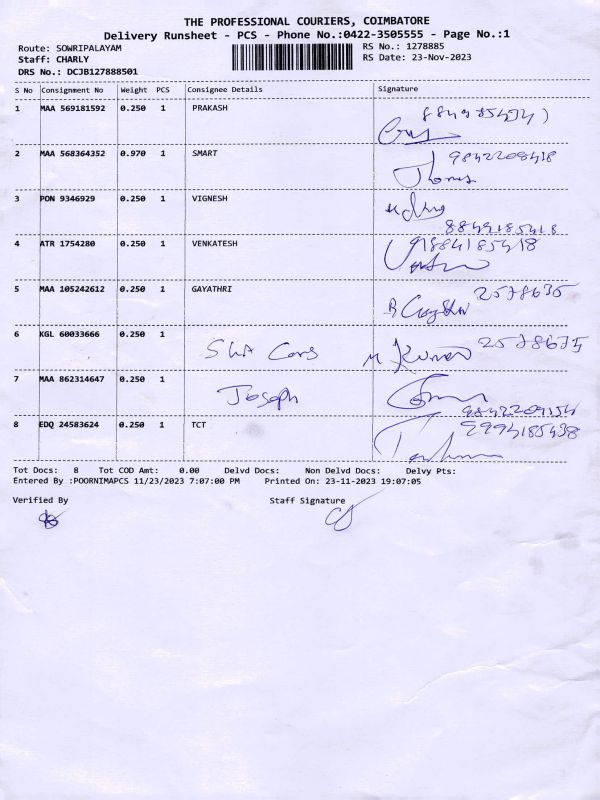 THE PROFESSIONAL COURIERS, COIMBATORE
Delivery Runsheet - PCS - Phone No.:0422-3505555 - Page No.:1
Route: SOWRIPALAYAM RS No.: 1278885
Staff: CHARLY RS Date: 23-Nov-2023
DRS No.: DCJB127888501
S No Consignment No Weight PCS Consignee Details Signature
1 MAA 569181592 0.250 1 PRAKASH
2 MAA 568364352 0.970 1 SMART 9842208418
3 PON 9346929 0.250 1 VIGNESH
4 ATR 1754280 0.250 1 VENKATESH
5 MAA 105242612 0.250 1 GAYATHRI 2578635
6 KGL 60033666 0.250 1 Cars M Kumar 2578635
7 MAA 862314647 0.250 1 Joseph
8 EDQ 24583624 0.250 1 TCT
Tot Docs: 8 Tot COD Amt: 0.00 Delvd Docs: Non Delvd Docs: Delvy Pts:
Entered By :POORNIMAPCS 11/23/2023 7:07:00 PM Printed On: 23-11-2023 19:07:05
Verified By Staff Signature